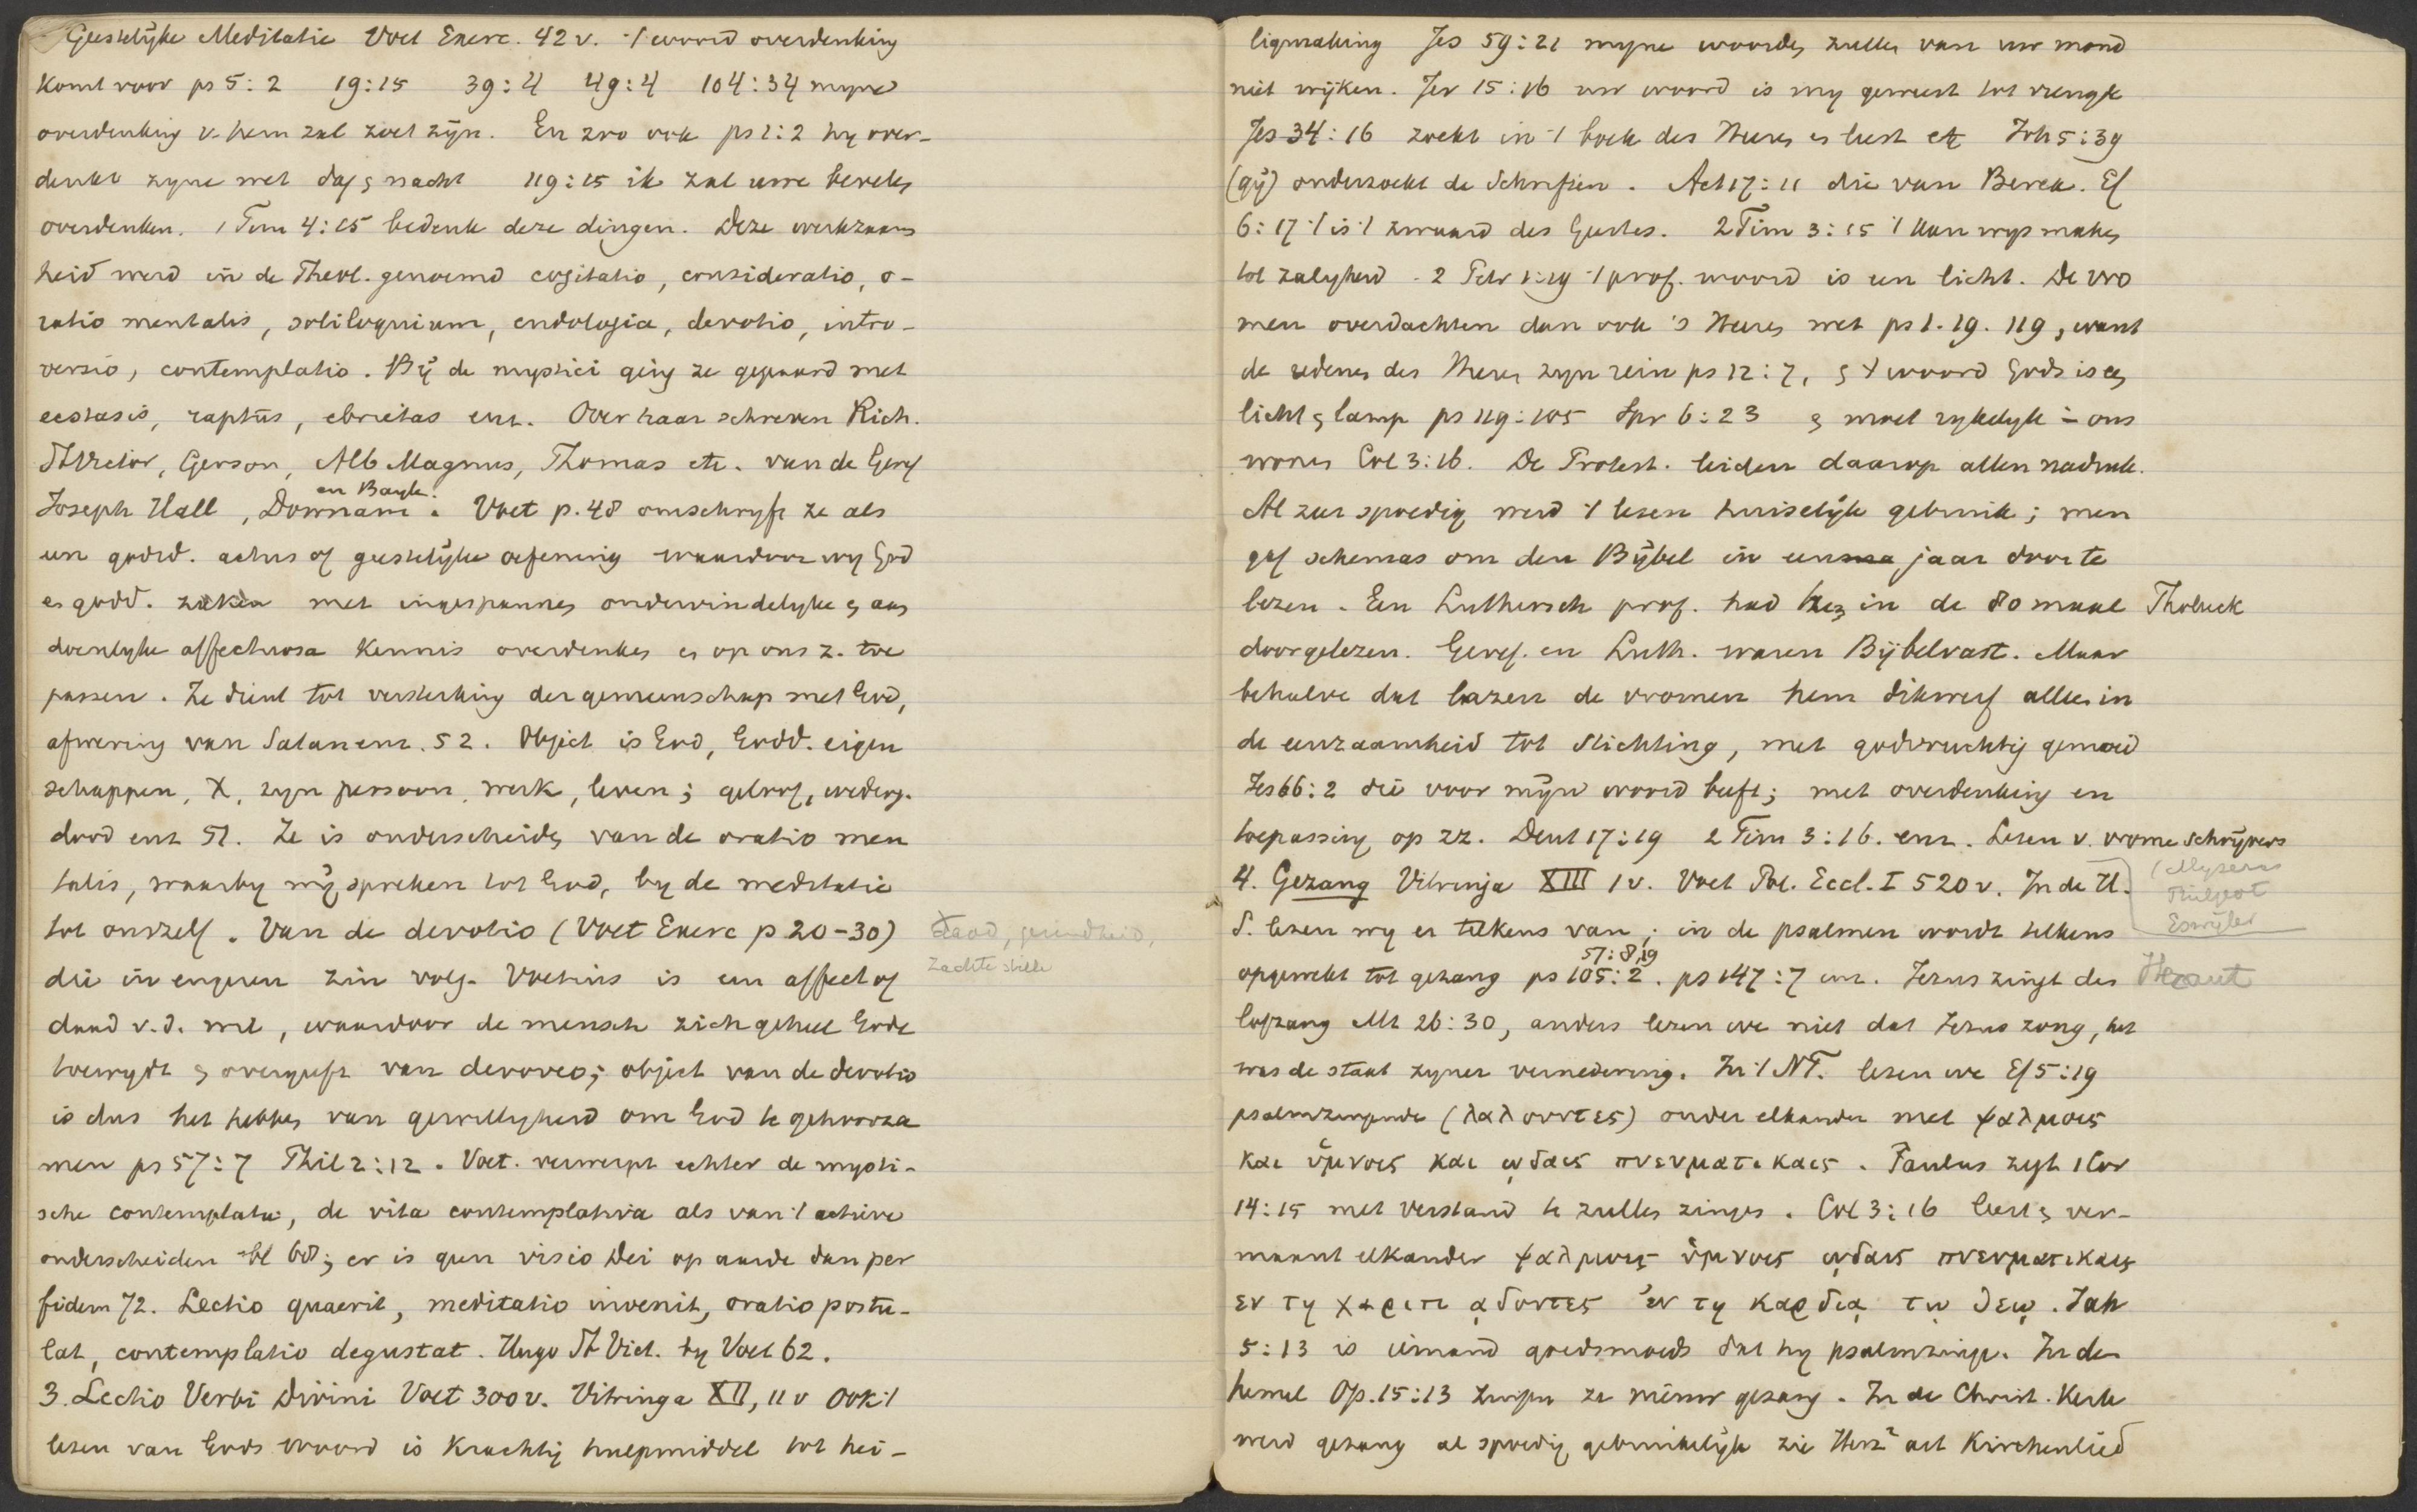 Geestelijke Meditatie Voet Exerc. 42 v. 't woord overdenking
komt voor ps 5:2 19:15 39:4 49:4 104:34 myne
overdenking v. hem zal zoet zijn. En zoo ook ps 1:2 hy over-
denkt zyne wet dag en nacht 119:15 ik zal uwe bevelen
overdenken. 1 Tim 4:15 bedenk deze dingen. Deze werkzaam
heid werd in de Theol. genoemd cogitatio, consideratio, o-
ratio mentalis, soliloquium, endologia, devotio, intro-
versio, contemplatio. Bij de mystici ging ze gepaard met
ecstasis, raptus, ebrietas enz. Over haar schreven Rich.
St Victor, Gerson, Alb Magnus, Thomas etc. van de Geref
en Bayle.
Joseph Hall, Downam. Voet p. 48 omschryft ze als
een godd. actus of geestelijke oefening waardoor wy God
en godd. zaken met ingespannen ondervindelyke en aan
doenlyke affectuosa kennis overdenken en op ons z. toe
passen. Ze dient tot versterking der gemeenschap met God,
afwering van Satan enz. 52. Object is God, Godd. eigen
schappen, X, zyn persoon, werk, leven; geloof, wederg.
dood enz 51. Ze is onderscheiden van de oratio men
talis, waarby wij spreken tot God, by de meditatie
tot onszelf. Van de devotio (Voet Exerc p 20-30)
daad,
zachte stille
die in engeren zin volg. Voetius is een affect of
daad v. d. wil, waardoor de mensch zich geheel Gode
toewydt en overgeeft van devoveo; object van de devotio
is dus het hebben van gewilligheid om God te gehoorza
men ps 57:7 Phil 2:12. Voet. verwerpt echter de mysti-
sche contemplatie, de vita contemplativa als van 't actieve
onderscheiden bl 68; er is geen visio Dei op aarde dan per
fidem 72. Lectio quaerit, meditatio invenit, oratio postu-
lat, contemplatio degustat. Hugo St Vict. by Voet 62.
3. Lectio Verbi Divini Voet 300 v. Vitringa XII, 11 v Ook 't
lezen van Gods woord is krachtig hulpmiddel tot hei-
ligmaking Jes 59:21 myne woorden zullen van uw mond
niet wijken. Jer 15:16 uw woord is my geweest tot vreugde
Jes 34:16 zoekt in 't boek des Heeren en leest etc Joh 5:39
(gij) onderzoekt de Schriften. Act 17:11 die van Berea. Ef
6:17 't is 't zwaard des Geestes. 2 Tim 3:15 't kan wys maken
tot zaligheid. 2 Petr 1:19 't prof. woord is een licht. De vro
men overdachten dan ook 's Heeren wet ps 1. 19. 119, want
de redenen des Heeren zyn rein ps 12:7, en 't woord Gods is een
licht en lamp ps 119:105 Spr 6:23 en moet rykelyk in ons
wonen Col 3:16. De Protest. leiden daarop allen nadruk.
Al zeer spoedig werd 't lezen huiselijk gebruik; men
gaf schemas om den Bijbel in een jaar door te
lezen. Een Luthersch prof. had hem in de 80 maal Tholuck
doorgelezen. Geref. en Luth. waren Bijbelvast. Maar
behalve dat lazen de vromen hem dikwerf alleen in
de eenzaamheid tot stichting, met godvruchtig gemoed
Jes 66:2 die voor mijn woord beeft; met overdenking en
toepassing op zz. Deut 17:19 2 Tim 3:16. enz. Lezen v. vrome schrijvers
4. Gezang Vitringa XIII 1 v. Voet Pol. Eccl. I 520 v. In de H.
Eswijler
S. lezen wy er telkens van; in de psalmen wordt telkens
57:8, 9
opgewekt tot gezang ps 105:2. ps 147:7 enz. Jezus zingt den Heraut
lofzang Mt 26:30, anders lezen we niet dat Jezus zong, het
was de staat zyner vernedering. In 't NT. lezen we Ef 5:19
psalmzingende (λαλουντες) onder elkander met ψαλμοις
και ὑμνοις και ῳδαις πνευματικαις. Paulus zegt 1 Cor
14:15 met verstand te zullen zingen. Col 3:16 leert en ver-
maant elkander ψαλμοις ὑμνοις ῳδαις πνευματικαις
εν τῃ χαριτι ᾳδοντες εν τῃ καρδιᾳ τῳ θεῳ. Jak
5:13 is iemand goedsmoeds dat hy psalmzinge. In den
hemel Op. 15:13 zingen ze nieuw gezang. In de Christ. Kerk
werd gezang al spoedig gebruikelijk zie Herz² art Kirchenlied